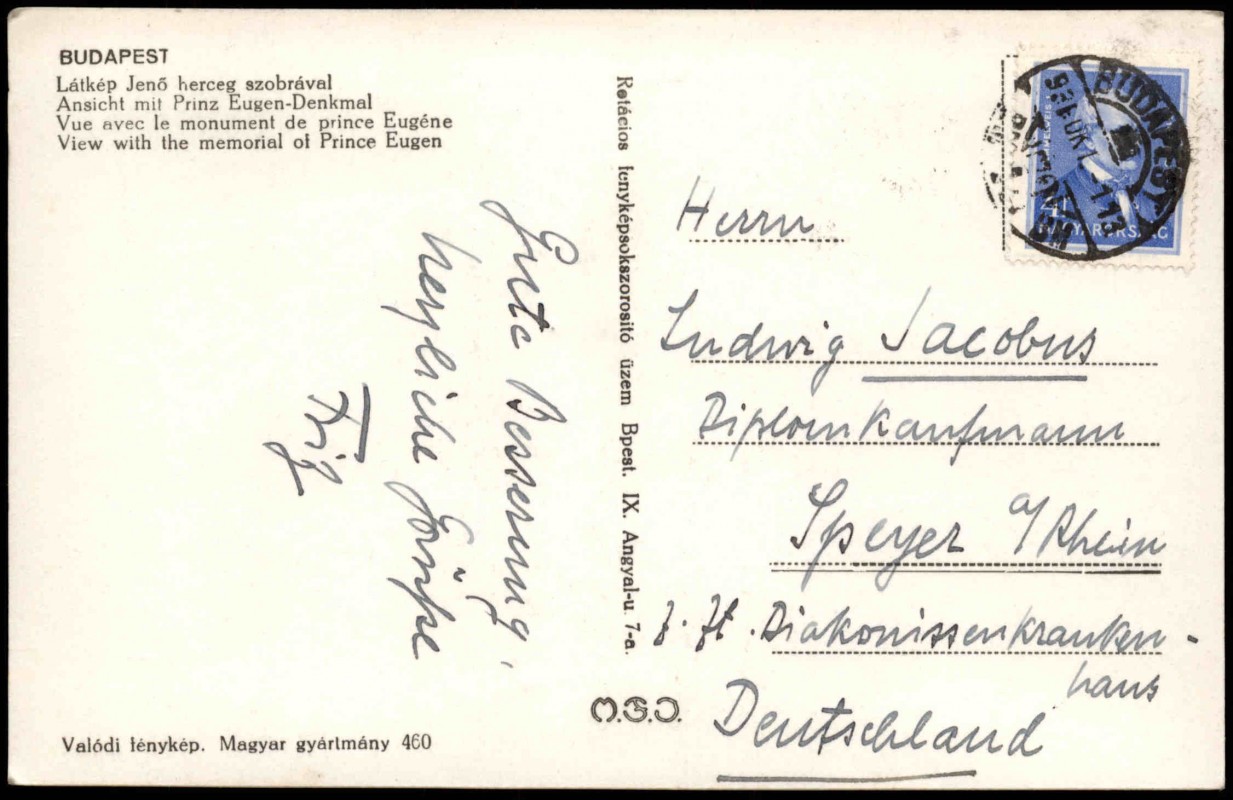 BUDAPEST
Látkép Jenő herceg szobrával
Ansicht mit Prinz Eugen-Denkmal
Vue avec le monument de prince Eugéne
View with the memorial of Prince Eugen
Gute Besserung,
herzliche Grüße
Fritz
Valódi fénykép. Magyar gyártmány 460
Rotációs fényképsokszorosító üzem Bpest. IX. Angyal-u. 7-a.
M.S.J.
BUDAPEST
MAGYARORSZÁG
Herrn
Ludwig Jacobus
Diplomkaufmann
Speyer a/Rhein
z. Zt. Diakonissenkranken-
haus
Deutschland